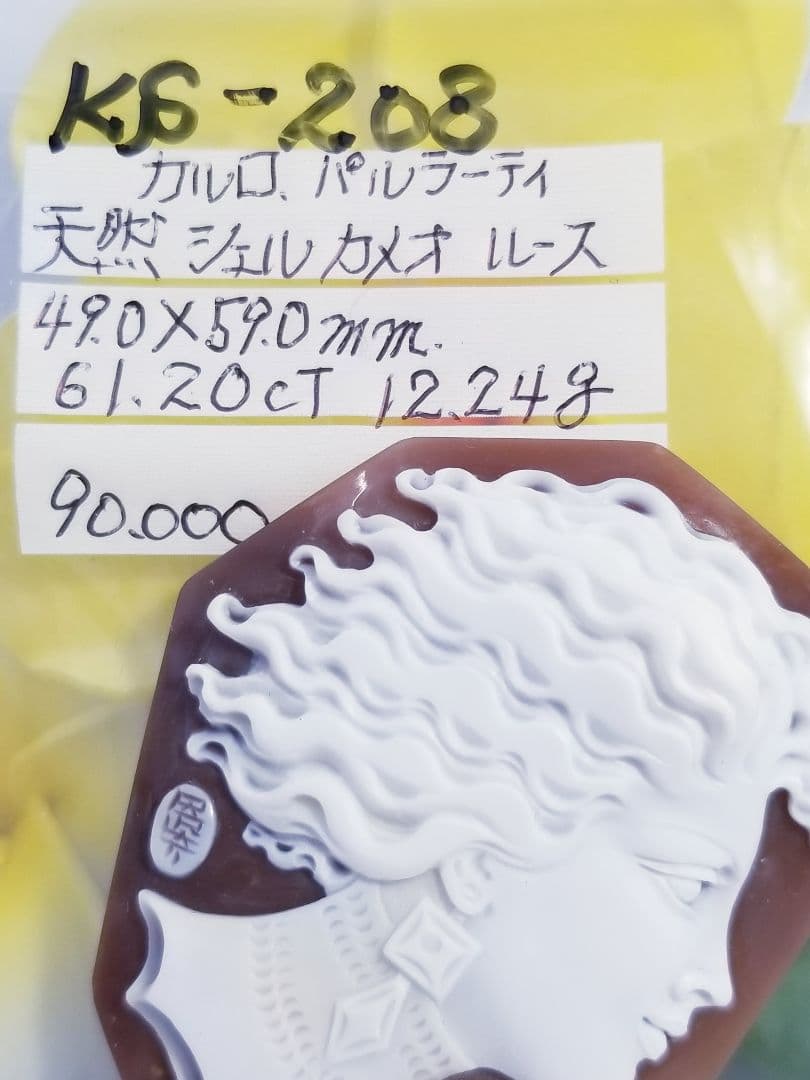 KS-208
カルロ、パルラーティ
天然 シェル カメオ ルース
49.0×59.0mm.
61.20cT 12.24g
90.000